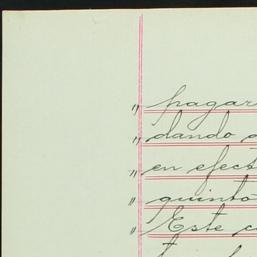 " pagar
" dando
" en efect
" quinto
" Este c